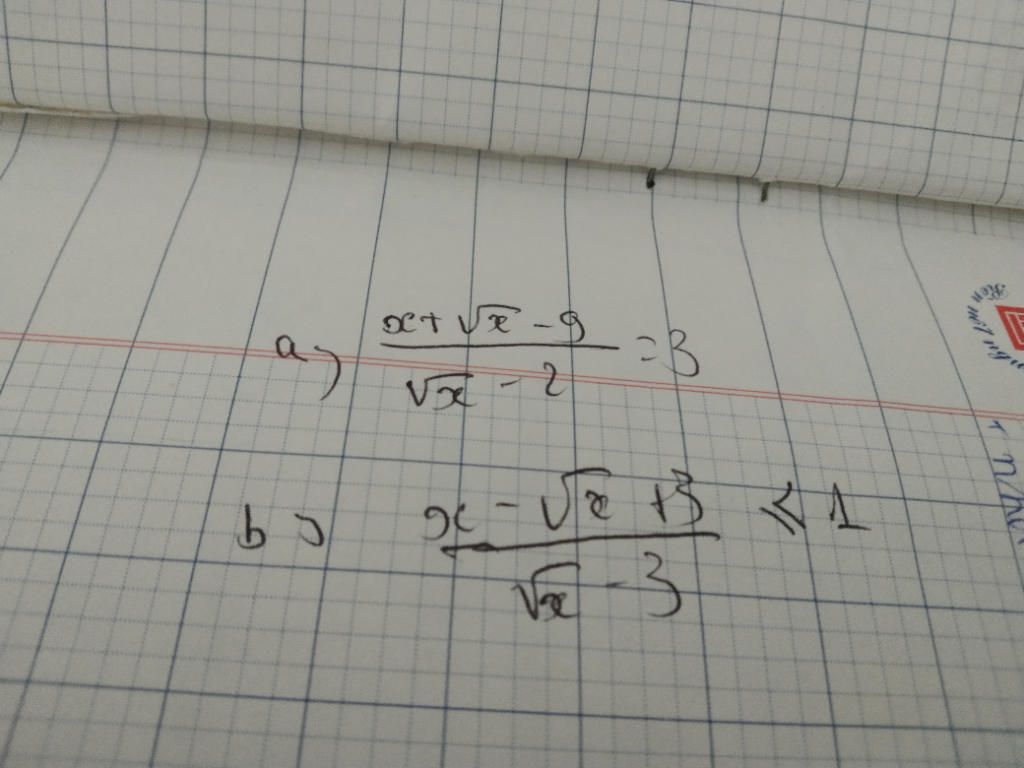 a) (x + √x - 9) / (√x - 2) = 3
b) (x - √x + 3) / (√x - 3) ⩽ 1